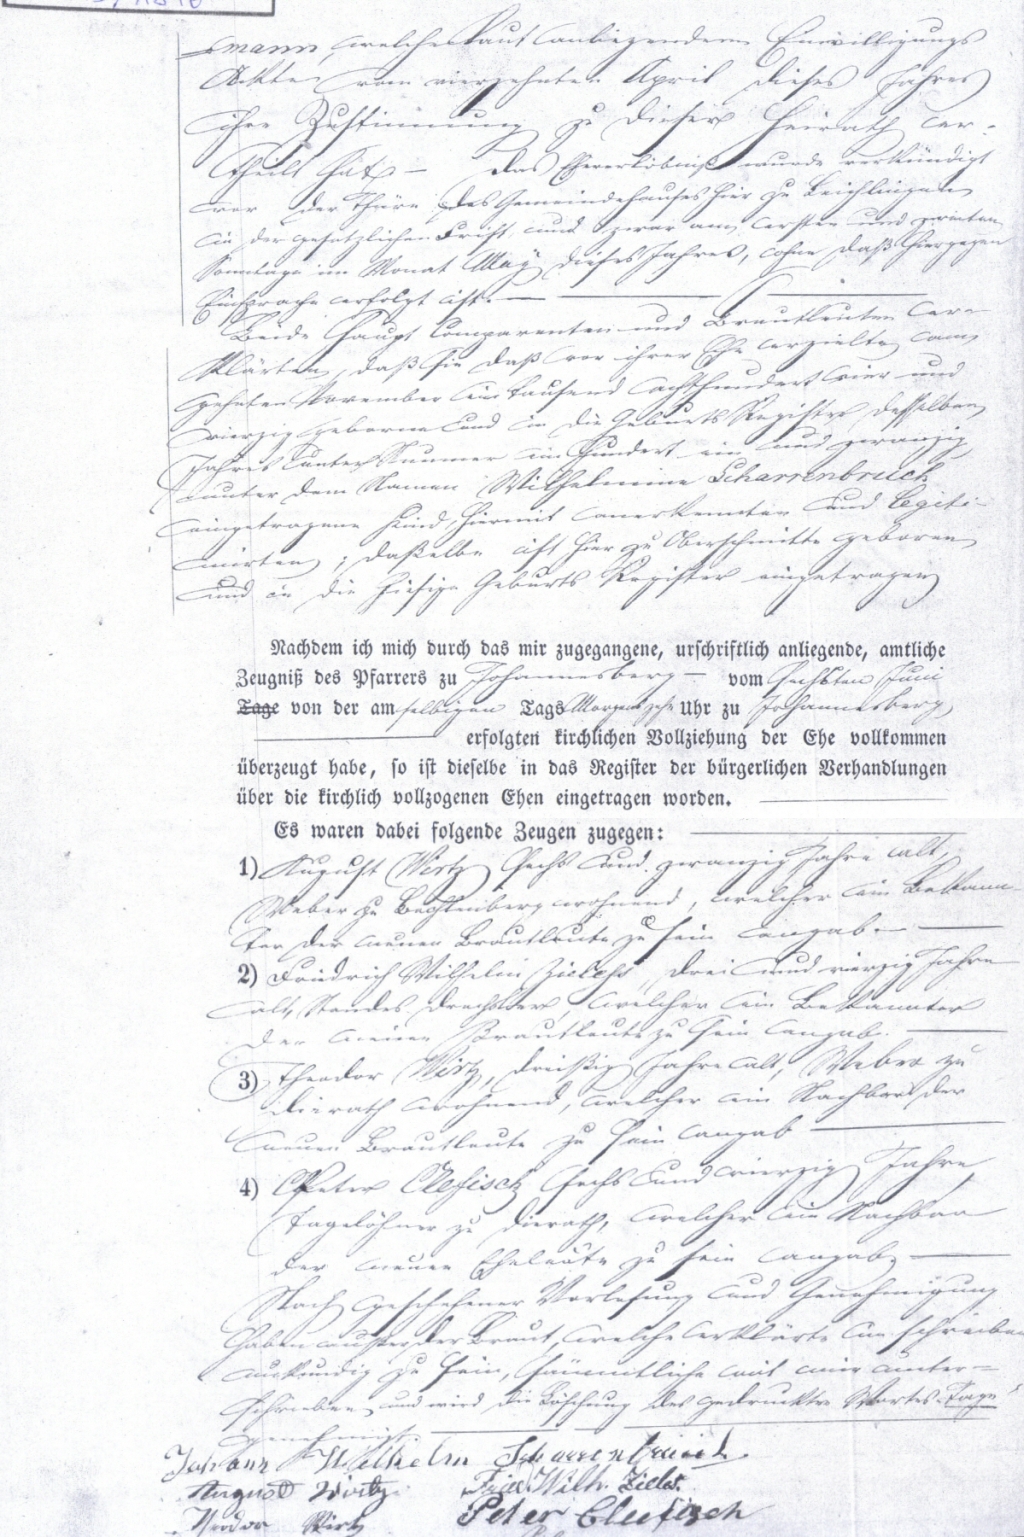 mann, welche laut anliegendem Einwilligungs
Akte vom vierzehnten April dieses Jahres
ihre Zustimmung zu dieser Heirath er-
theilt hat. — Das Eheverlöbniß wurde verkündigt
vor der Thüre des Gemeindehauses hier zu Leichlingen
in der gesetzlichen Frist, und zwar am ersten und zweiten
Sonntage im Monat May dieses Jahres, ohne daß hiergegen
Einsprache erfolgt ist. —
Beide Haupt Comparenten und Brautleuten er-
klärten, daß sie daß vor ihrer Ehe erzielte, am
zehnten November ein tausend achthundert vier und
vierzig geborne und in die Geburts Register desselben
Jahres unter Nummer ein hundert ein und zwanzig
unter dem Namen Wilhelmine Scharrenbroich
eingetragene Kind, hiermit anerkennten und legiti-
mirten; daßelbe ist hier zu Oberschmitte geboren
und in die hiesige Geburts Register eingetragen
Nachdem ich mich durch das mir zugegangene, urschriftlich anliegende, amtliche
Zeugniß des Pfarrers zu Johannesberg — vom sechsten Juni
Tage von der am selbigen Tags Morgens Uhr zu Johannesberg,
erfolgten kirchlichen Vollziehung der Ehe vollkommen
überzeugt habe, so ist dieselbe in das Register der bürgerlichen Verhandlungen
über die kirchlich vollzogenen Ehen eingetragen worden.
Es waren dabei folgende Zeugen zugegen:
1) August Wirtz sechs und zwanzig Jahre alt,
Weber zu wohnend, welcher ein Bekann-
ter der neuen Brautleute zu sein angab. —
2) Friedrich Wilhelm drei und vierzig Jahre
alt, Standes Drechsler, welcher ein Bekannter
der neuen Brautleute zu sein angab. —
3) Theodor Wirtz, dreißig Jahre alt, Weber zu
Dierath wohnend, welcher ein Nachbar der
neuen Brautleute zu sein angab —
4) Peter Clefisch sechs und vierzig Jahre,
Tagelöhner zu Dierath, welcher ein Nachbar
der neuen Eheleute zu sein angab —
Nach geschehener Vorlesung und Genehmigung
haben außer der Braut, welche erklärte im schreiben
unkundig zu sein, sämmtliche mit mir unter-
schrieben und wird die Löschung des gedruckten Wortes „Tage“
genehmigt.
Johann Wilhelm Scharrenbruich
August Wirtz Fried Wilh.
Theodor Wirtz Peter Clefisch